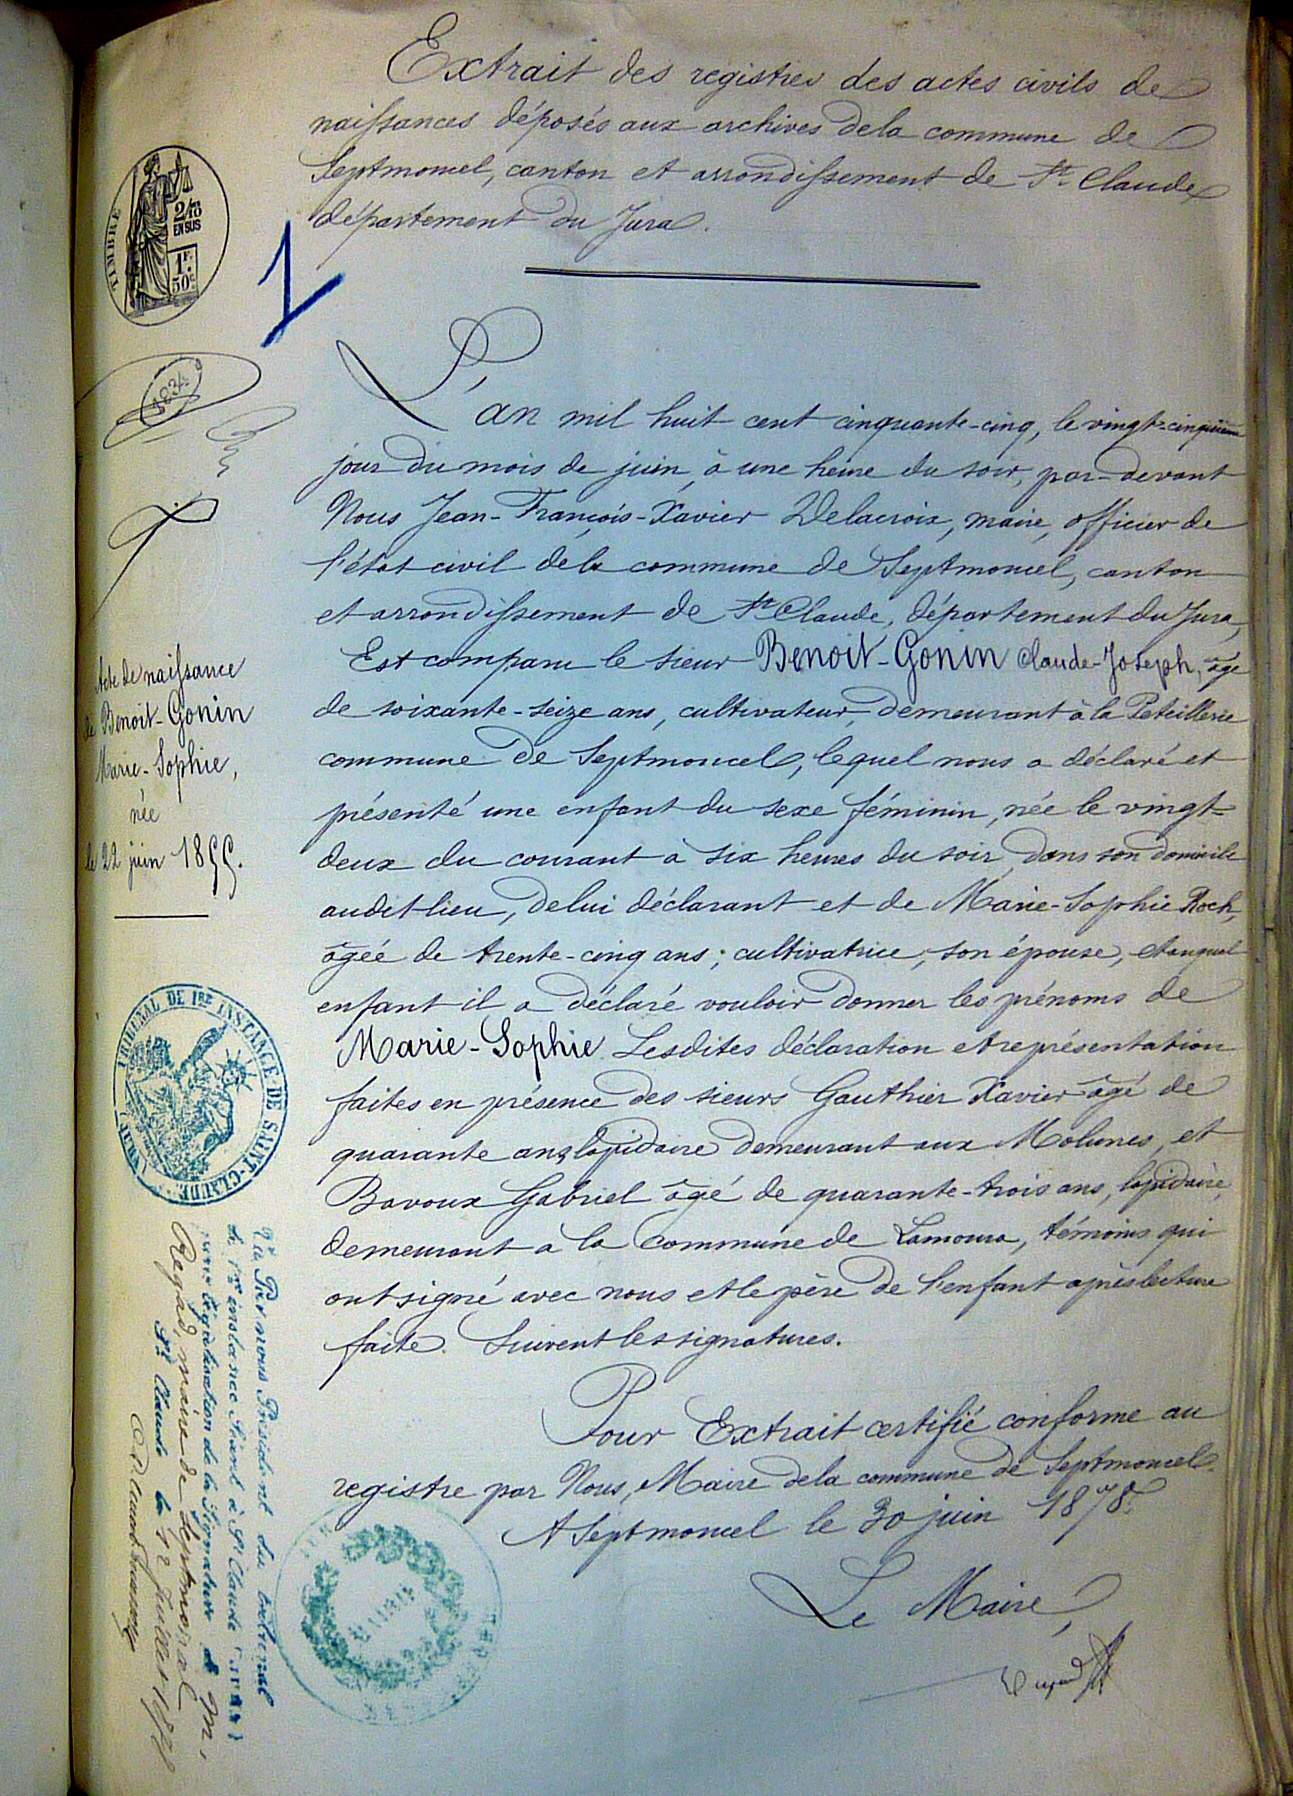 Extrait des registres des actes civils de
naissances déposés aux archives de la commune de
Septmoncel, canton et arrondissement de St. Claude
département du Jura.
TIMBRE
2/10
EN SUS
1F.
50c
1
1234
L'an mil huit cent cinquante-cinq, le vingt-cinquième
jour du mois de juin, à une heure du soir, par-devant
Nous Jean-François-Xavier Delacroix, maire, officier de
l'état civil de la commune de Septmoncel, canton
et arrondissement de St. Claude, département du Jura,
Est comparu le sieur Benoit-Gonin Claude-Joseph, âgé
de soixante-seize ans, cultivateur, demeurant à la Peteillerie
commune de Septmoncel, lequel nous a déclaré et
présenté une enfant du sexe féminin, née le vingt-
deux du courant à six heures du soir, dans son domicile
audit lieu, de lui déclarant et de Marie-Sophie Roch,
âgée de trente-cinq ans, cultivatrice, son épouse, et auquel
enfant il a déclaré vouloir donner les prénoms de
Marie-Sophie. Lesdites déclaration et représentation
faites en présence des sieurs Gauthier Xavier âgé de
quarante ans, lapidaire demeurant aux Molunes, et
Bavoux Gabriel âgé de quarante-trois ans, lapidaire,
demeurant a la commune de Lamoura, témoins qui
ont signé avec nous et le père de l'enfant après lecture
faite. Suivent les signatures.
Pour Extrait certifié conforme au
registre par Nous, Maire de la commune de Septmoncel.
A Septmoncel le 30 juin 1878.
Le Maire,
Acte de naissance
de Benoit-Gonin
Marie-Sophie,
née
le 22 juin 1855.
TRIBUNAL DE 1RE INSTANCE DE SAINT-CLAUDE (JURA)
Vu Par nous Président du tribunal
de 1re instance Séant à St Claude (Jura)
pour légalisation de la Signature de M.
Regad, maire de Septmoncel
St Claude le 12 Juillet 1878
MAIRIE